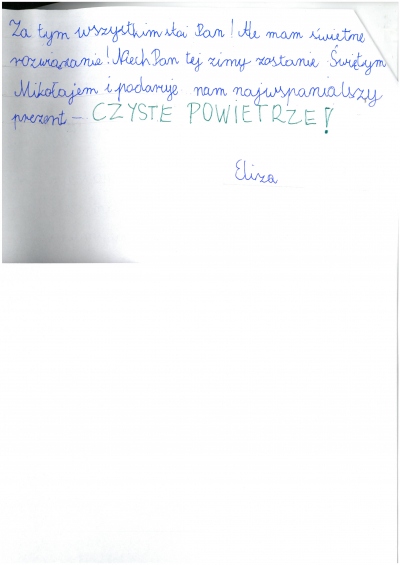 Za tym wszystkim stoi Pan! Ale mam świetne
rozwiązanie! Niech Pan tej zimy zostanie Świętym
Mikołajem i podaruje nam najwspanialszy
prezent – CZYSTE POWIETRZE!
Eliza